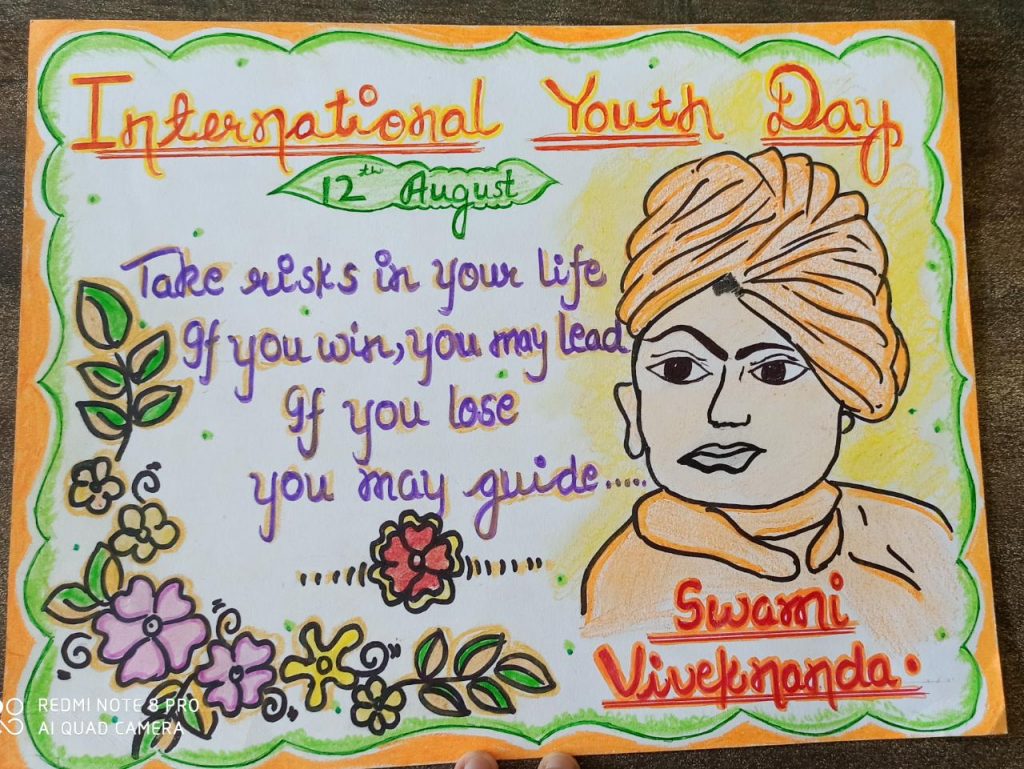 International Youth Day
12th August
Take risks in your life
If you win, you may lead
If you lose
you may guide.....
Swami
Viveknanda.
REDMI NOTE 8 PRO
AI QUAD CAMERA